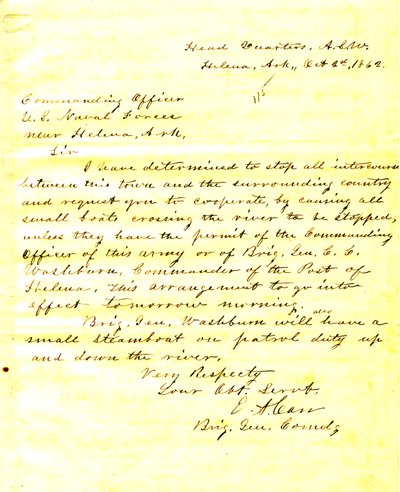 Head Quarters, A.S.W.
Helena, Ark., Oct 2d, 1862.
115
Commanding Officer
U. S. Naval Forces
near Helena, Ark,
Sir
I have determined to stop all intercourse
between this town and the surrounding country
and request you to cooperate, by causing all
small boats crossing the river to be stopped,
unless they have the permit of the Commanding
Officer of this army or of Brig. Gen. C. C.
Washburn, Commander of the Post of
Helena. This arrangement to go into
effect tomorrow morning.
Brig. Gen. Washburn will also have a
small steamboat on patrol duty up
and down the river.
Very Respecty
Your Obt. Servt.
E. A. Carr
Brig. Gen. Comdg